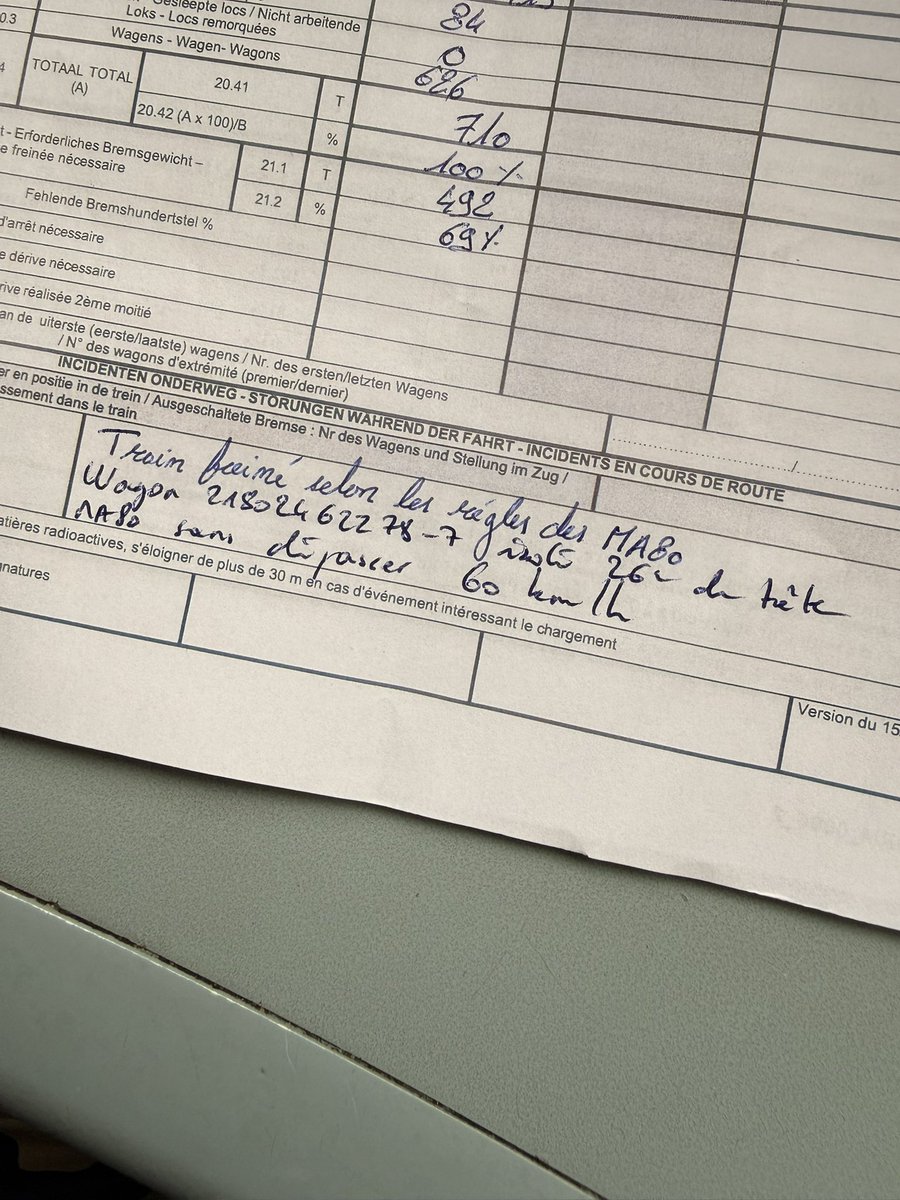 Gesleepte locs / Nicht arbeitende
Loks - Locs remorquées
84
0.3
Wagens - Wagen- Wagons
0
626
4
TOTAAL TOTAL
(A)
20.41
T
710
20.42 (A x 100)/B
%
100 %
t - Erforderliches Bremsgewicht –
e freinée nécessaire
21.1
T
492
21.2
%
69%
Fehlende Bremshundertstel %
d'arrêt nécessaire
e dérive nécessaire
rive réalisée 2ème moitié
an de uiterste (eerste/laatste) wagens / Nr. des ersten/letzten Wagens
/ N° des wagons d'extrémité (premier/dernier)
/
INCIDENTEN ONDERWEG - STÖRUNGEN WÄHREND DER FAHRT - INCIDENTS EN COURS DE ROUTE
er en positie in de trein / Ausgeschaltete Bremse : Nr des Wagens und Stellung im Zug /
ssement dans le train
Train freiné selon les règles des MA80
Wagon 218024622 78-7 isolé 26e de tête
MA80 sans dépasser 60 km/h
atières radioactives, s'éloigner de plus de 30 m en cas d'événement intéressant le chargement
gnatures
Version du 15